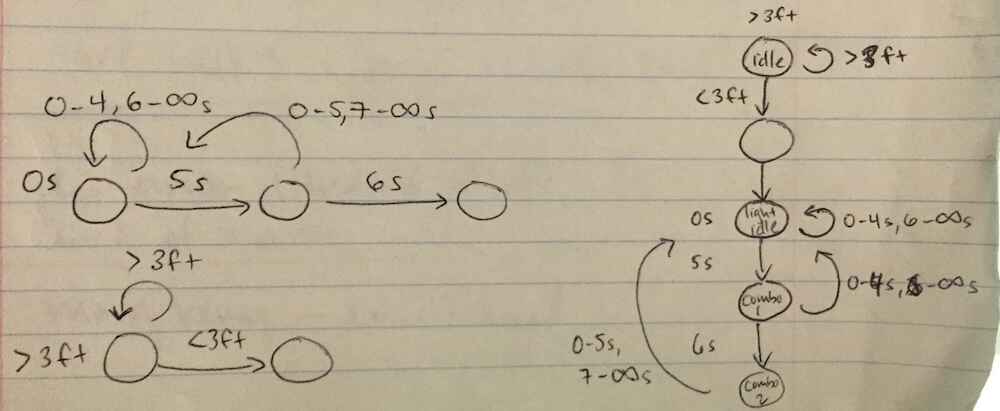 0-4, 6-∞s
0-5, 7-∞s
0s
5s
6s
>3ft
>3ft
<3ft
>3ft
idle
>3ft
<3ft
0s
light
idle
0-4s, 6-∞s
5s
combo
1
0-4s, 6-∞s
6s
0-5s,
7-∞s
combo
2